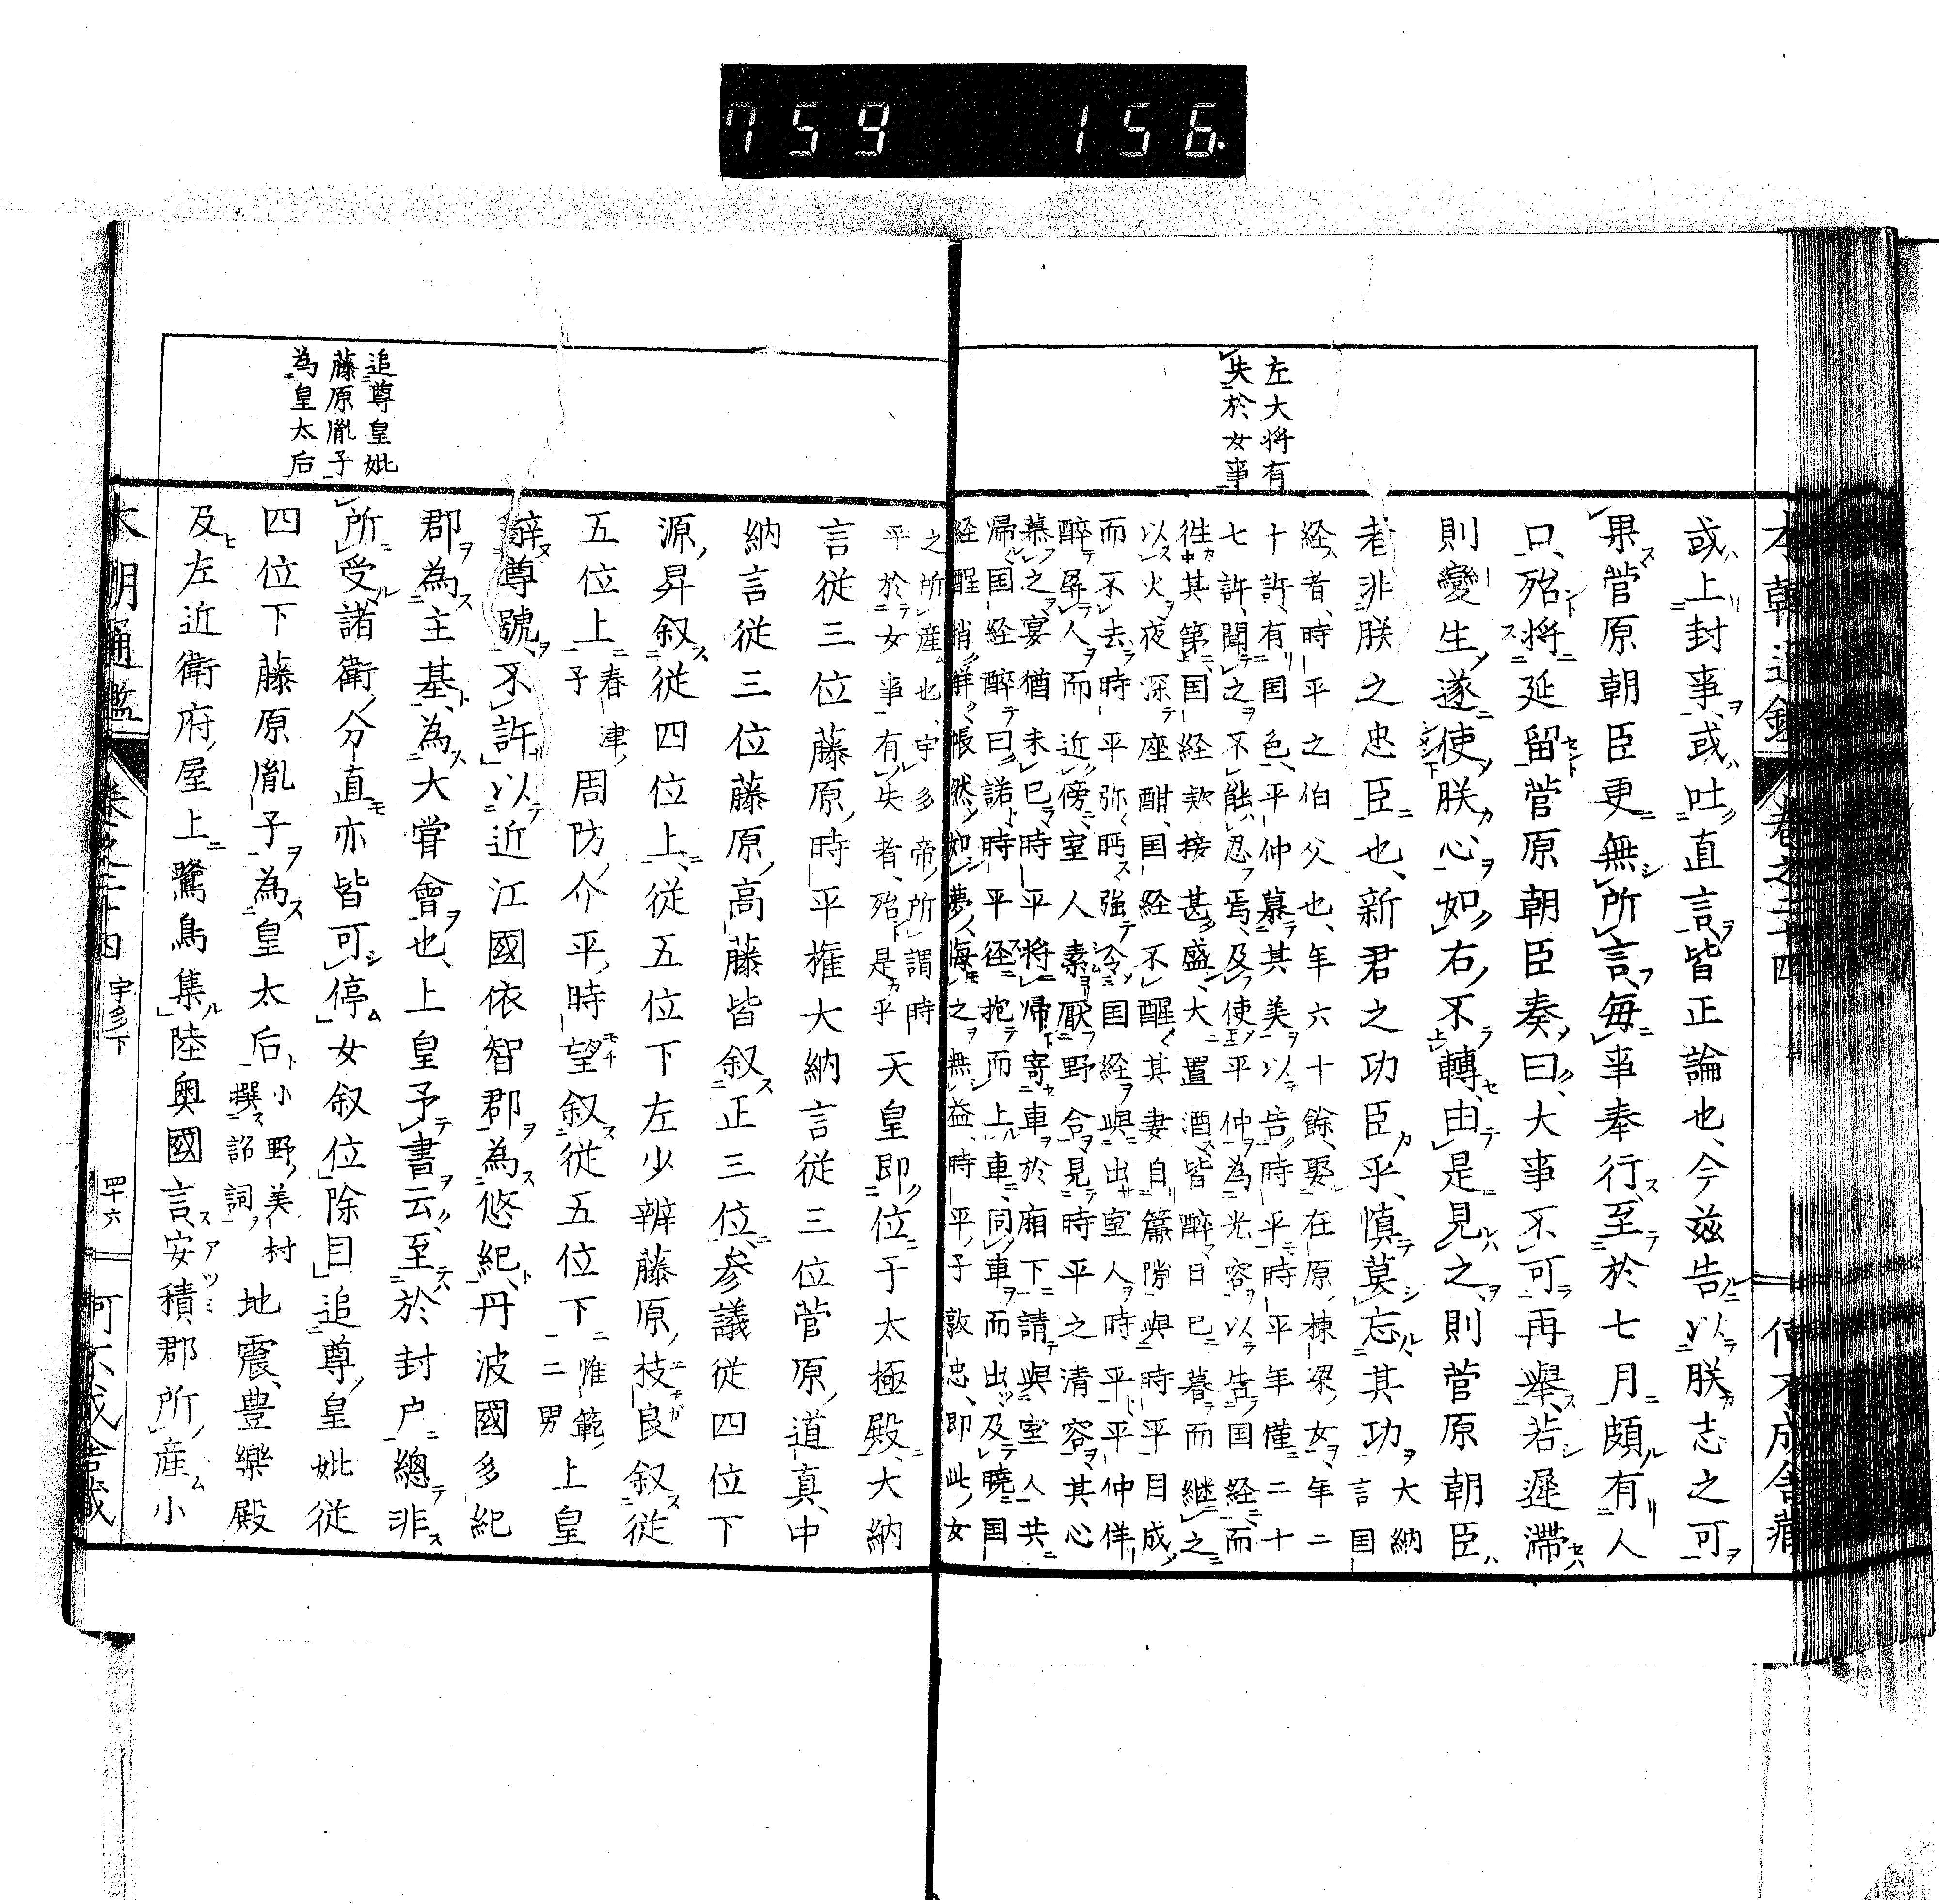 759 156.
本朝通鑑 卷之二十四 何不成舎蔵
左大将有
失於女事
或上封事、或吐直言、皆正論也、今茲告以朕志之可
果菅原朝臣更無所言、毎事奉行、至於七月頗有人
口、殆將延留菅原朝臣奏曰、大事不可再舉、若遲滯
則變生、遂使朕心如右、不轉、由是見之、則菅原朝臣
者非朕之忠臣也、新君之功臣乎、慎莫忘其功 大納
言国
経者、時平之伯父也、年六十餘、娶在原棟梁女、年二
十許、有国色、平仲慕其美以告時平、時平年僅二十
七許、聞之不能忍焉、及使平仲為光容以告国経、而
徃其第、国経欵接甚盛、大置酒皆醉、日已暮而継之
以火、夜深座酣、国経不醒、其妻自簾隙與時平目成、
而不去、時平弥眄強令国経與出室人、時平平仲佯
醉屏人而近傍、室人素厭野合見時平之清容其心
慕之、宴猶未已、時平將帰寄車於廂下請與室人共
帰、国経醉曰、諾、時平径抱而上車、同車而出、及曉国
経醒稍鮮、帳然如夢、悔之無益、時平子敦忠、即此女
之所産也、宇多帝所謂時
平於女事有失者、殆是乎 天皇即位于太極殿、大納
言従三位藤原時平權大納言従三位菅原道真、中
納言従三位藤原高藤皆叙正三位、參議従四位下
源昇叙従四位上、従五位下左少辨藤原枝良叙従
五位上 春津
子 周防介平時望叙従五位下 惟範
二男 上皇
辭尊號、不許、以近江國依智郡為悠紀、丹波國多紀
郡為主基、為大甞會也、上皇予書云、至於封戸總非
所受諸衛、分直亦皆可停女叙位除目追尊皇妣従
四位下藤原胤子為皇太后 小野美村
撰詔詞 地震、豊樂殿
及左近衛府屋上鷺鳥集陸奥國言、安積郡所産小
追尊皇妣
藤原胤子
為皇太后
本朝通鑑 卷之二十四 宇多下 四十六 何不成舎蔵